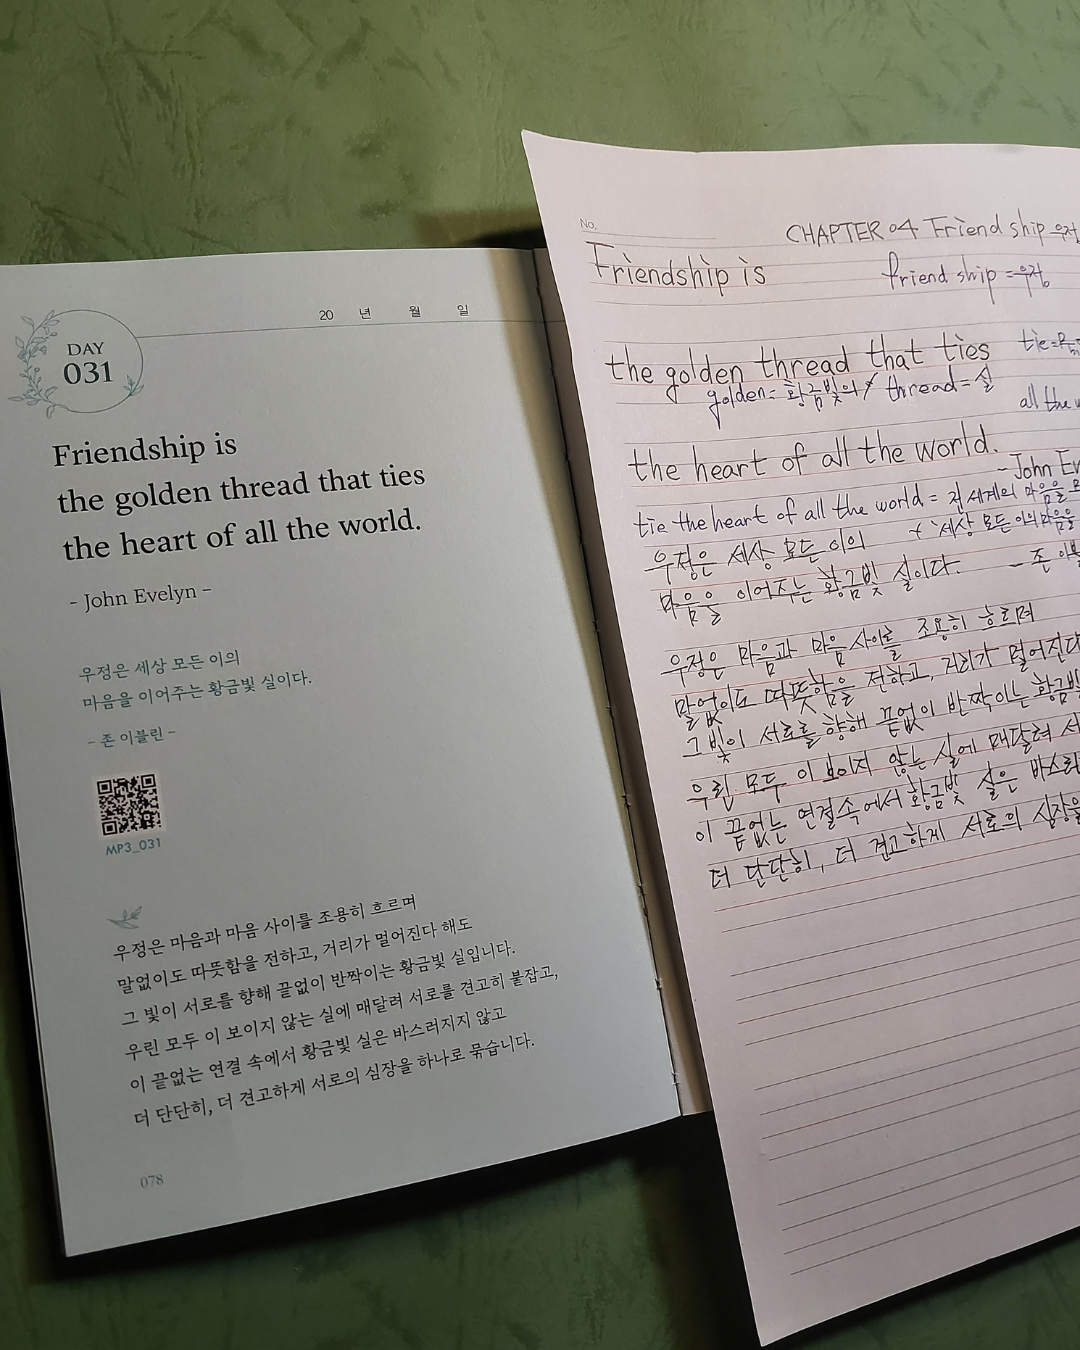 20 년 월 일
DAY
031
Friendship is
the golden thread that ties
the heart of all the world.
- John Evelyn -
우정은 세상 모든 이의
마음을 이어주는 황금빛 실이다.
- 존 이블린 -
MP3_031
우정은 마음과 마음 사이를 조용히 흐르며
말없이도 따뜻함을 전하고, 거리가 멀어진다 해도
그 빛이 서로를 향해 끝없이 반짝이는 황금빛 실입니다.
우린 모두 이 보이지 않는 실에 매달려 서로를 견고히 붙잡고,
이 끝없는 연결 속에서 황금빛 실은 바스러지지 않고
더 단단히, 더 견고하게 서로의 심장을 하나로 묶습니다.
078
No.
CHAPTER 04 Friend ship 우정
Friendship is
friend ship = 우정
the golden thread that ties
tie=
golden= 황금빛의 / thread= 실
all the
the heart of all the world.
- John
tie the heart of all the world = 전 세계의 마음을
우정은 세상 모든 이의
+ 세상 모든 이의 마음을
마음을 이어주는 황금빛 실이다.
- 존
우정은 마음과 마음 사이를 조용히 흐르며
말없이도 따뜻함을 전하고, 거리가 멀어진다
그 빛이 서로를 향해 끝없이 반짝이는 황금빛
우린 모두 이 보이지 않는 실에 매달려 서
이 끝없는 연결속에서 황금빛 실은 바스러
더 단단히, 더 견고하게 서로의 심장을